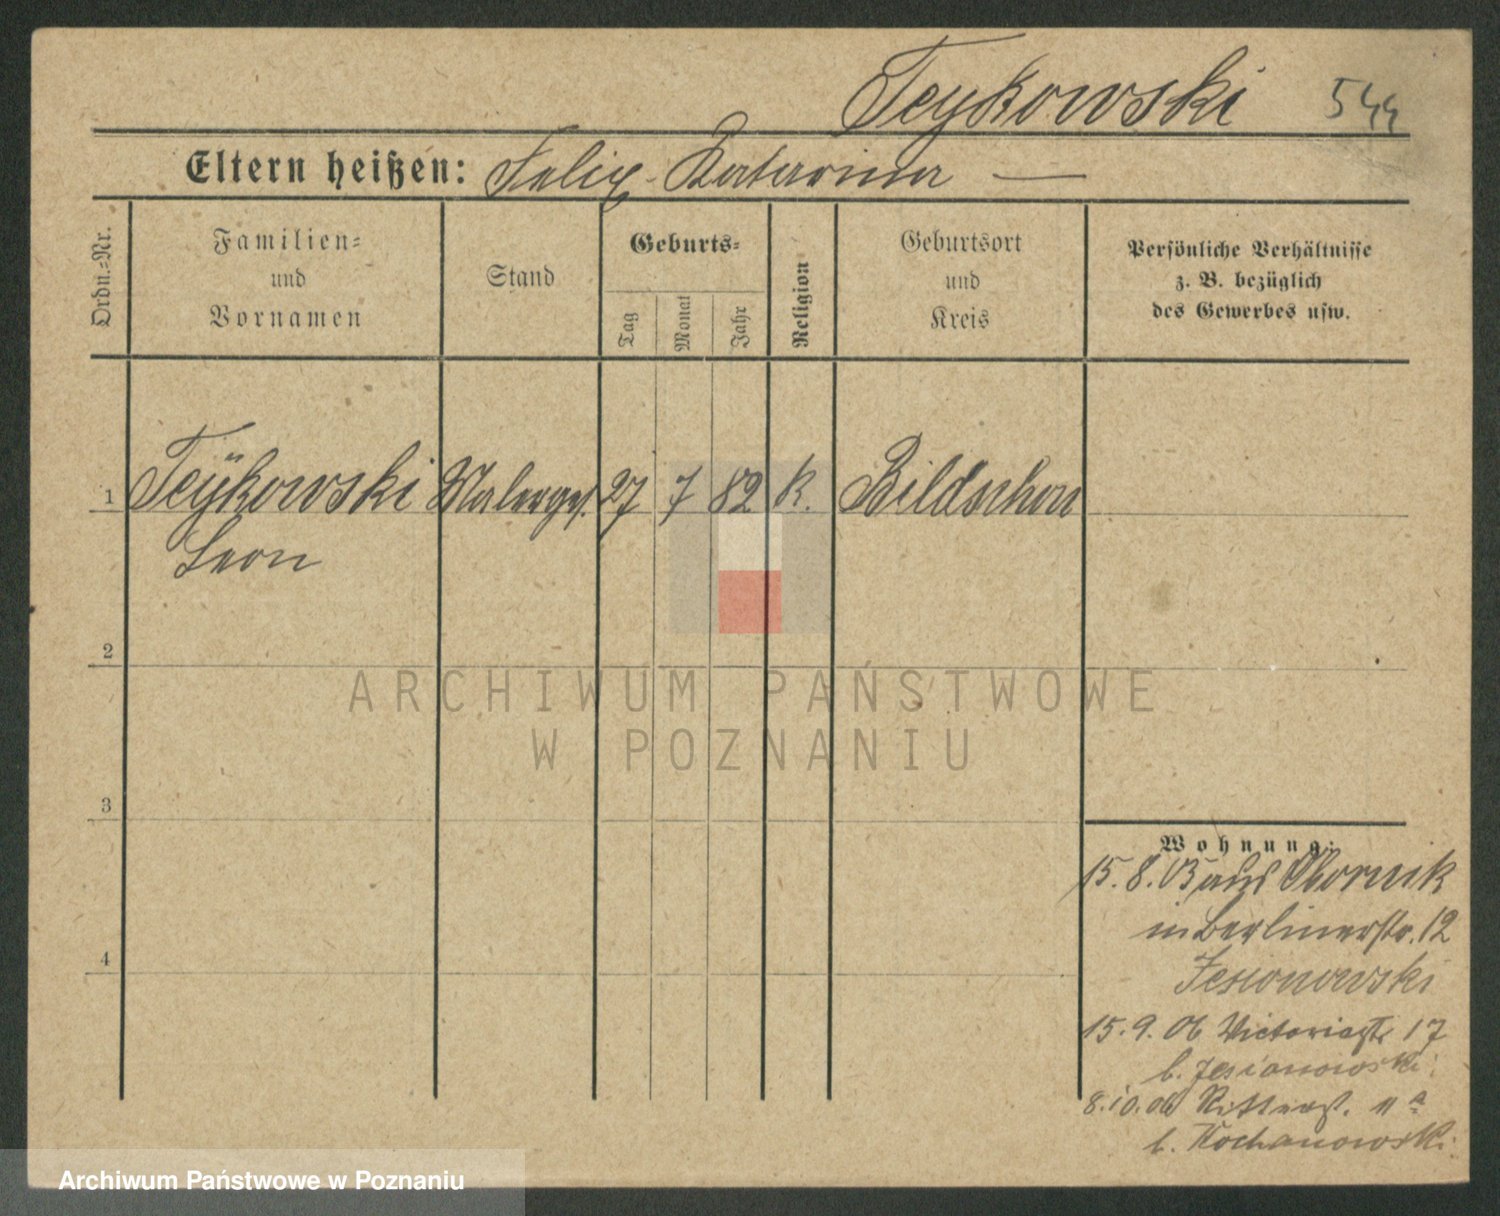 Teykowski 544
Eltern heißen: Felix - Katarina —
Ordn.-Nr.
Familien-
und
Vornamen
Stand
Geburts-
Tag
Monat
Jahr
Religion
Geburtsort
und
Kreis
Persönliche Verhältnisse
z. B. bezüglich
des Gewerbes usw.
1 Teÿkowski Malerges. 27 7 82 k. Bildschön
Leon
2
ARCHIWUM PAŃSTWOWE
W POZNANIU
3
Wohnung:
15.8.05 aus Obornik
in Berlinerstr. 12
Jesionowski
4
15.9.06 Victoriastr 17
b. Jesianowski.
8.10.06 Ritterst. 11a
b. Kochanowski.
Archiwum Państwowe w Poznaniu